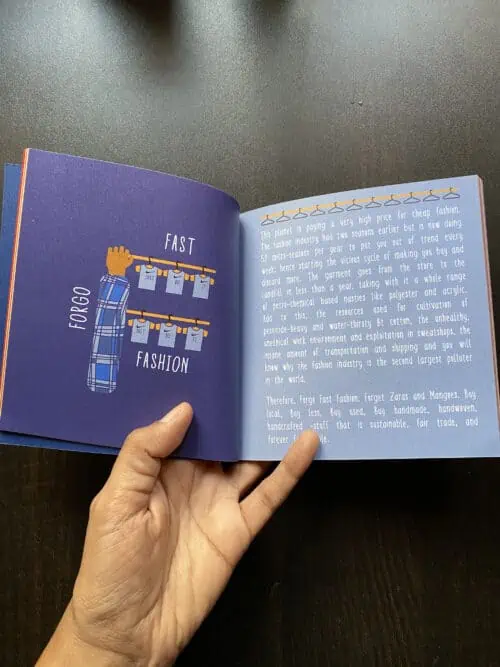 FAST
FORGO
FASHION
This planet is paying a very high price for cheap fashion.
The fashion industry had two seasons earlier but is now doing
52 micro-seasons per year to put you out of trend every
week: hence starting the vicious cycle of making you buy and
discard more. The garment goes from the store to the
landfill in less than a year, taking with it a whole range
of petro-chemical based nasties like polyester and acrylic.
Add to this, the resources used for cultivation of
pesticide-heavy and water-thirsty Bt cotton, the unhealthy,
unethical work environment and exploitation in sweatshops, the
insane amount of transportation and shipping and you will
know why the fashion industry is the second largest polluter
in the world.
Therefore, Forgo Fast Fashion. Forget Zaras and Mangoes. Buy
local, Buy less, Buy used, Buy handmade, handwoven,
handcrafted stuff that is sustainable, fair trade, and
forever